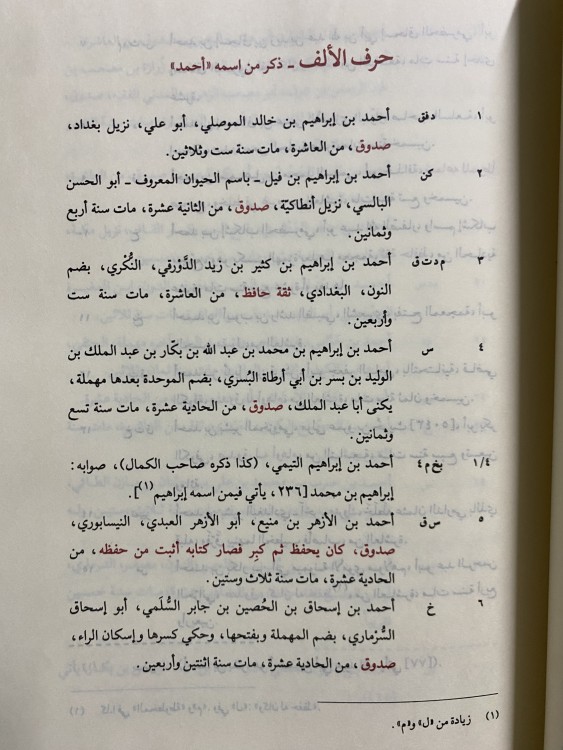 حرف الألف - ذكر من اسمه «أحمد»
١ دفق أحمد بن إبراهيم بن خالد الموصلي، أبو علي، نزيل بغداد،
صدوق، من العاشرة، مات سنة ست وثلاثين.
٢ كن أحمد بن إبراهيم بن فيل - باسم الحيوان المعروف - أبو الحسن
البالسي، نزيل أنطاكيّة، صدوق، من الثانية عشرة، مات سنة أربع
وثمانين.
٣ م د ت ق أحمد بن إبراهيم بن كثير بن زيد الدَّوْرقي، النُّكْري، بضم
النون، البغدادي، ثقة حافظ، من العاشرة، مات سنة ست
وأربعين.
٤ س أحمد بن إبراهيم بن محمد بن عبد الله بن بكّار بن عبد الملك بن
الوليد بن بسر بن أبي أرطاة البُسري، بضم الموحدة بعدها مهملة،
يكنى أبا عبد الملك، صدوق، من الحادية عشرة، مات سنة تسع
وثمانين.
١/٤ بخ م ٤ أحمد بن إبراهيم التيمي، (كذا ذكره صاحب الكمال)، صوابه:
إبراهيم بن محمد [٢٣٦، يأتي فيمن اسمه إبراهيم (١)].
٥ س ق أحمد بن الأزهر بن منيع، أبو الأزهر العبدي، النيسابوري،
صدوق، كان يحفظ ثم كبر فصار كتابه أثبت من حفظه، من
الحادية عشرة، مات سنة ثلاث وستين.
٦ خ أحمد بن إسحاق بن الحُصين بن جابر السُّلَمي، أبو إسحاق
السُّرْماري، بضم المهملة وبفتحها، وحكي كسرها وإسكان الراء،
صدوق، من الحادية عشرة، مات سنة اثنتين وأربعين.
(١) زيادة من «ل» و«م».